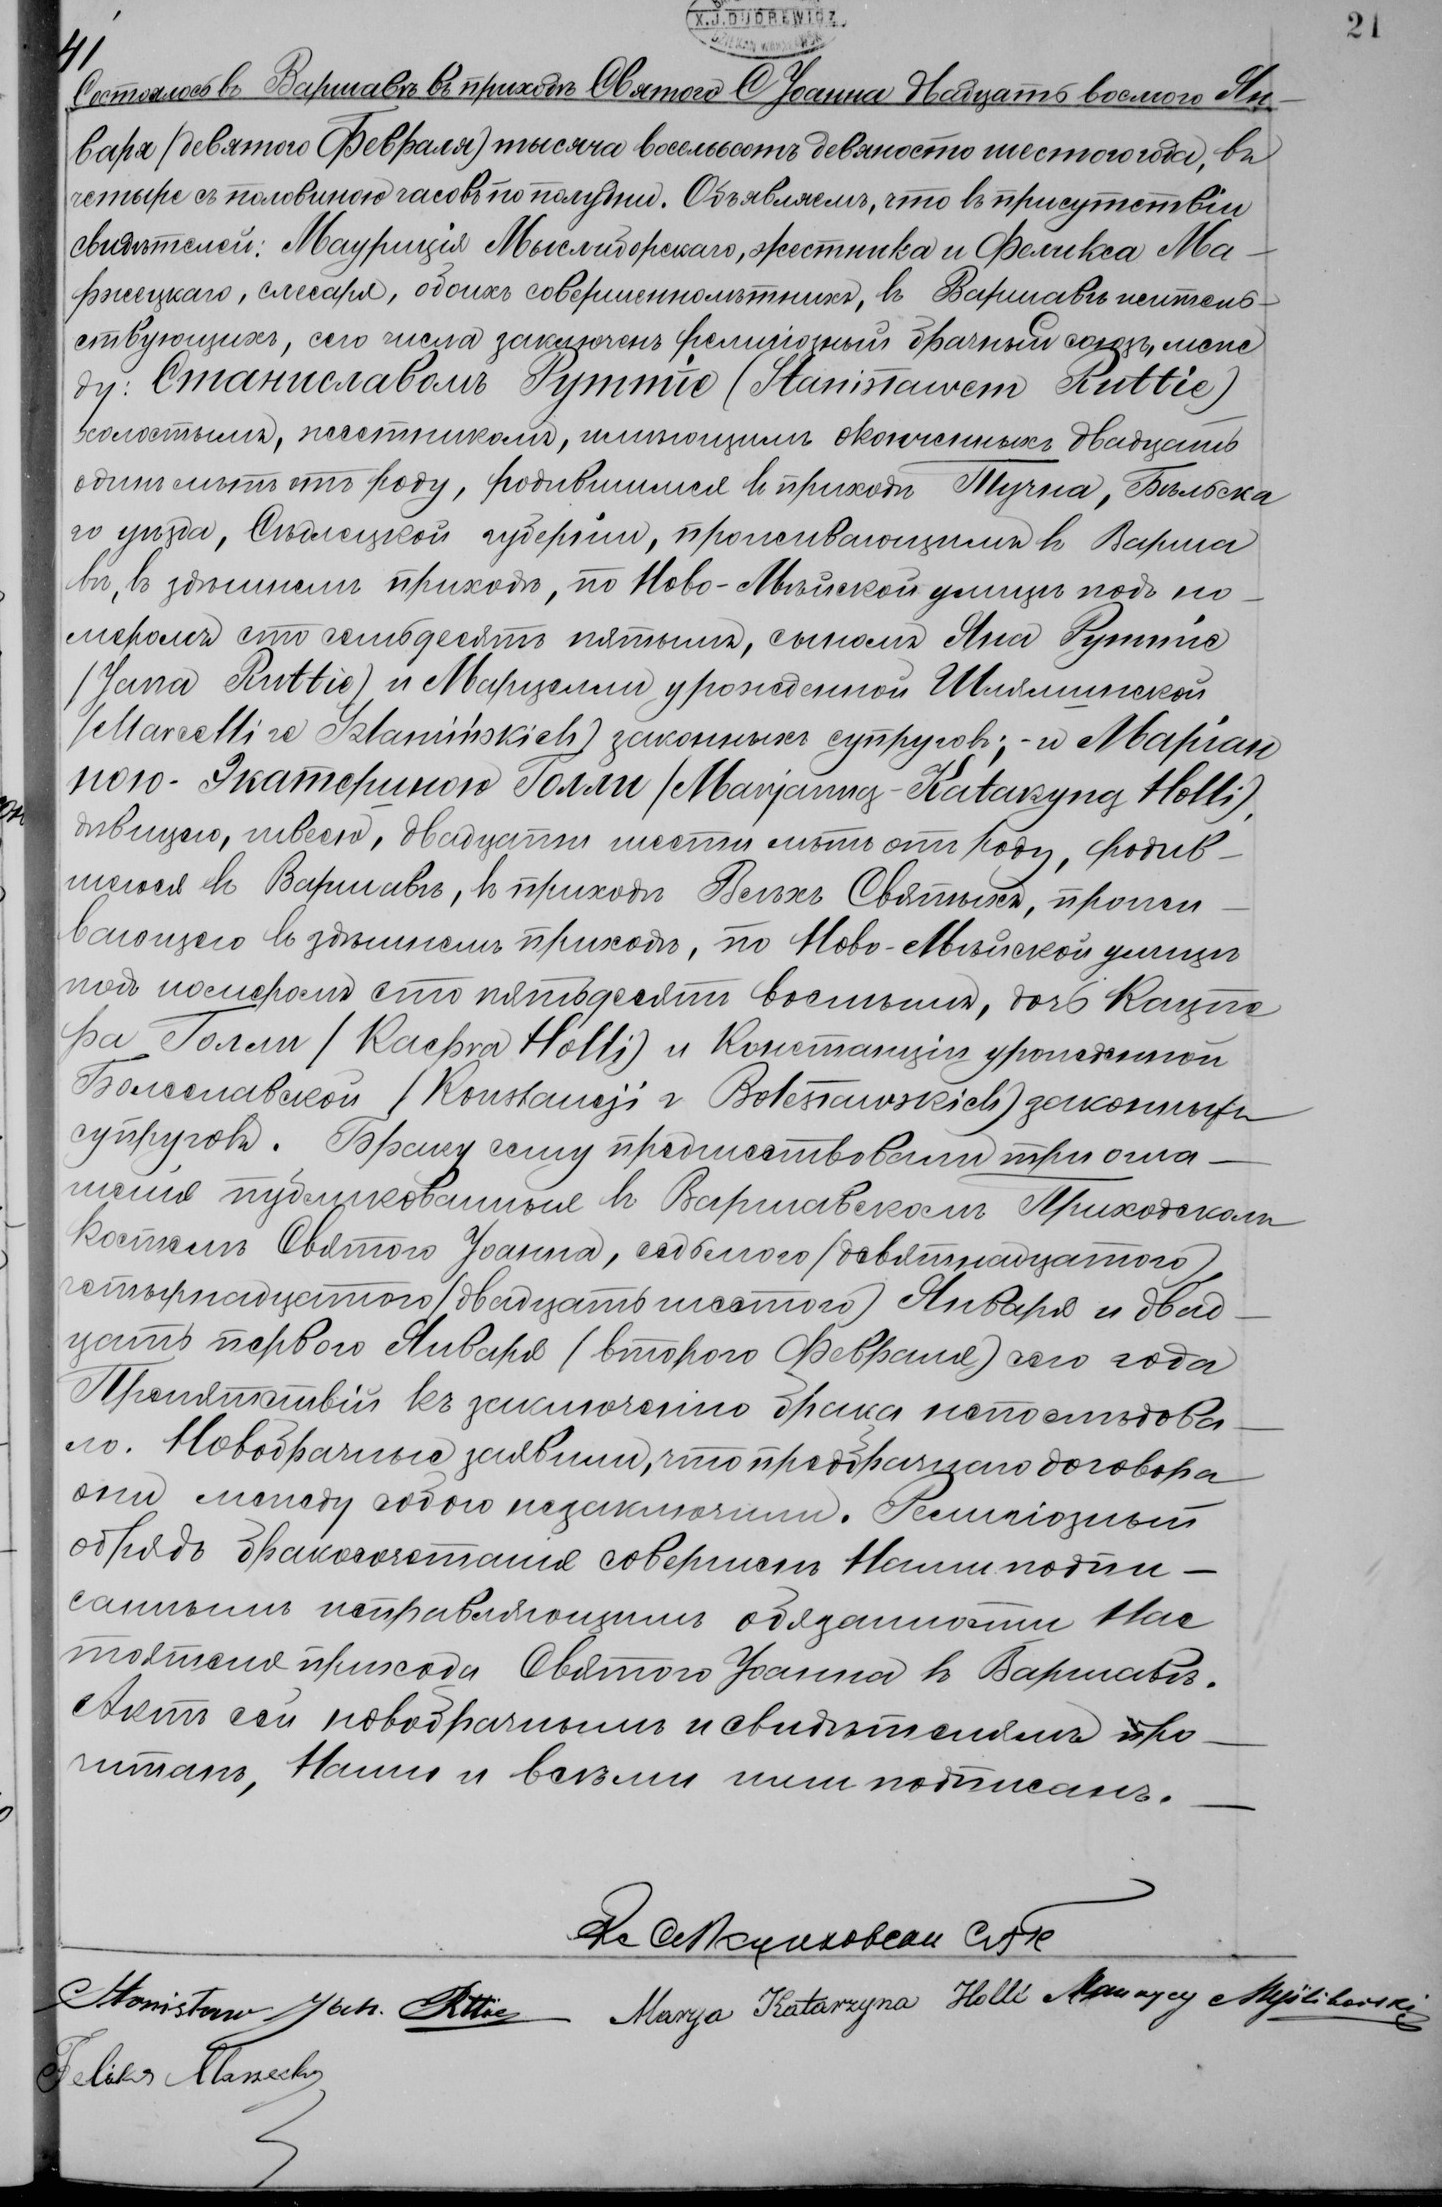 21
X.J. DUDREWICZ
DZIEKAN WARSZAWSKI
41
Состоялось въ Варшавѣ въ приходѣ Святого Іоанна двадцать восмого Ян-
варя (девятого Февраля) тысяча восемьсотъ девяносто шестого года, въ
четыре съ половиною часовъ по полудни. Объявляемъ, что въ присутствіи
свидѣтелей: Мауриція Мыслиборскаго, жестника и Феликса Ма-
ржецкаго, слесаря, обоихъ совершеннолѣтнихъ, въ Варшавѣ житель-
ствующихъ, сего числа заключенъ религіозный брачный союзъ, меже
ду: Станиславомъ Руттіе (Stanisławem Ruttie)
холостымъ, жестникомъ, имѣющимъ оконченныхъ двадцать
одинъ лѣтъ отъ роду, родившимся въ приходѣ Тучна, Бѣльска
го уѣзда, Сѣдлецкой губерніи, проживающимъ въ Варша
вѣ, въ здѣшнемъ приходѣ, по Ново-Мѣйской улицѣ подъ но-
меромъ сто семьдесятъ пятымъ, сыномъ Яна Руттіе
(Jana Ruttie) и Марцелли урожденной Шляминской
(Marcelli ze Szlamińskich) законныхъ супруговъ; - и Маріан
ною-Экатериною Голли (Marjanną-Katarzyną Holli),
дѣвицею, швеею, двадцати шести лѣтъ отъ роду, родив-
шеюся въ Варшавѣ, въ приходѣ Всѣхъ Святыхъ, прожи-
вающею въ здѣшнемъ приходѣ, по Ново-Мѣйской улицѣ
подъ номеромъ сто пятьдесятъ восмымъ, дочь Кацпе
ра Голли (Kacpra Holli) и Констанціи урожденной
Болеславской (Konstancji z Bolesławskich) законныхъ
супруговъ. Браку сему предшествовали три огла-
шенія публикованныя въ Варшавскомъ Приходскомъ
Костелѣ Святого Іоанна, седьмого (девятнадцатого)
четырнадцатого (двадцать шестого) Января и двад-
цать первого Января (второго Февраля) сего года
Препятствій къ заключенію брака непослѣдова-
ло. Новобрачные заявили, что предбрачнаго договора
они между собою незаключили. Религіозный
обрядъ бракосочетанія совершенъ Нами подпи-
саннымъ исправляющимъ обязанности Нас
тоятеля прихода Святого Іоанна въ Варшавѣ.
Актъ сей новобрачнымъ и свидѣтелямъ про-
читанъ, Нами и всѣми ими подписанъ.
Stanisław Jan. Ruttie Marya Katarzyna Holli Maurycy
Feliks Marzecki